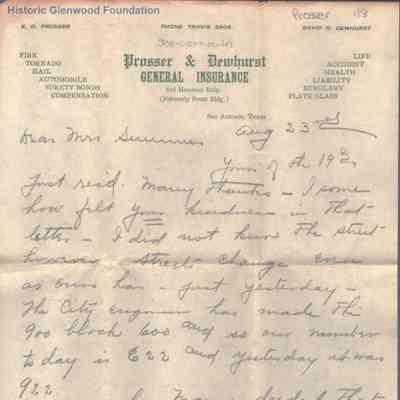 Historic Glenwood Foundation
Prosser 118
E. G. PROSSER
PHONE TRAVIS 5908
DAVID G. DEWHURST
Prosser & Dewhurst
GENERAL INSURANCE
Houston Bldg.
(Formerly Frost Bldg.)
San Antonio, Texas
FIRE
TORNADO
HAIL
AUTOMOBILE
SURETY BONDS
COMPENSATION
LIFE
ACCIDENT
HEALTH
LIABILITY
BURGLARY
PLATE GLASS
Aug 23rd
Dear Mrs Summers
Yours of the 19th
Just rec'd. Many thanks – I some
how felt your kindness in that
letter – I did not know the street
however streets change even
as ours has – just yesterday –
The City engineer has made the
900 block 600 and so our number
today is 622 and yesterday it was
922
that